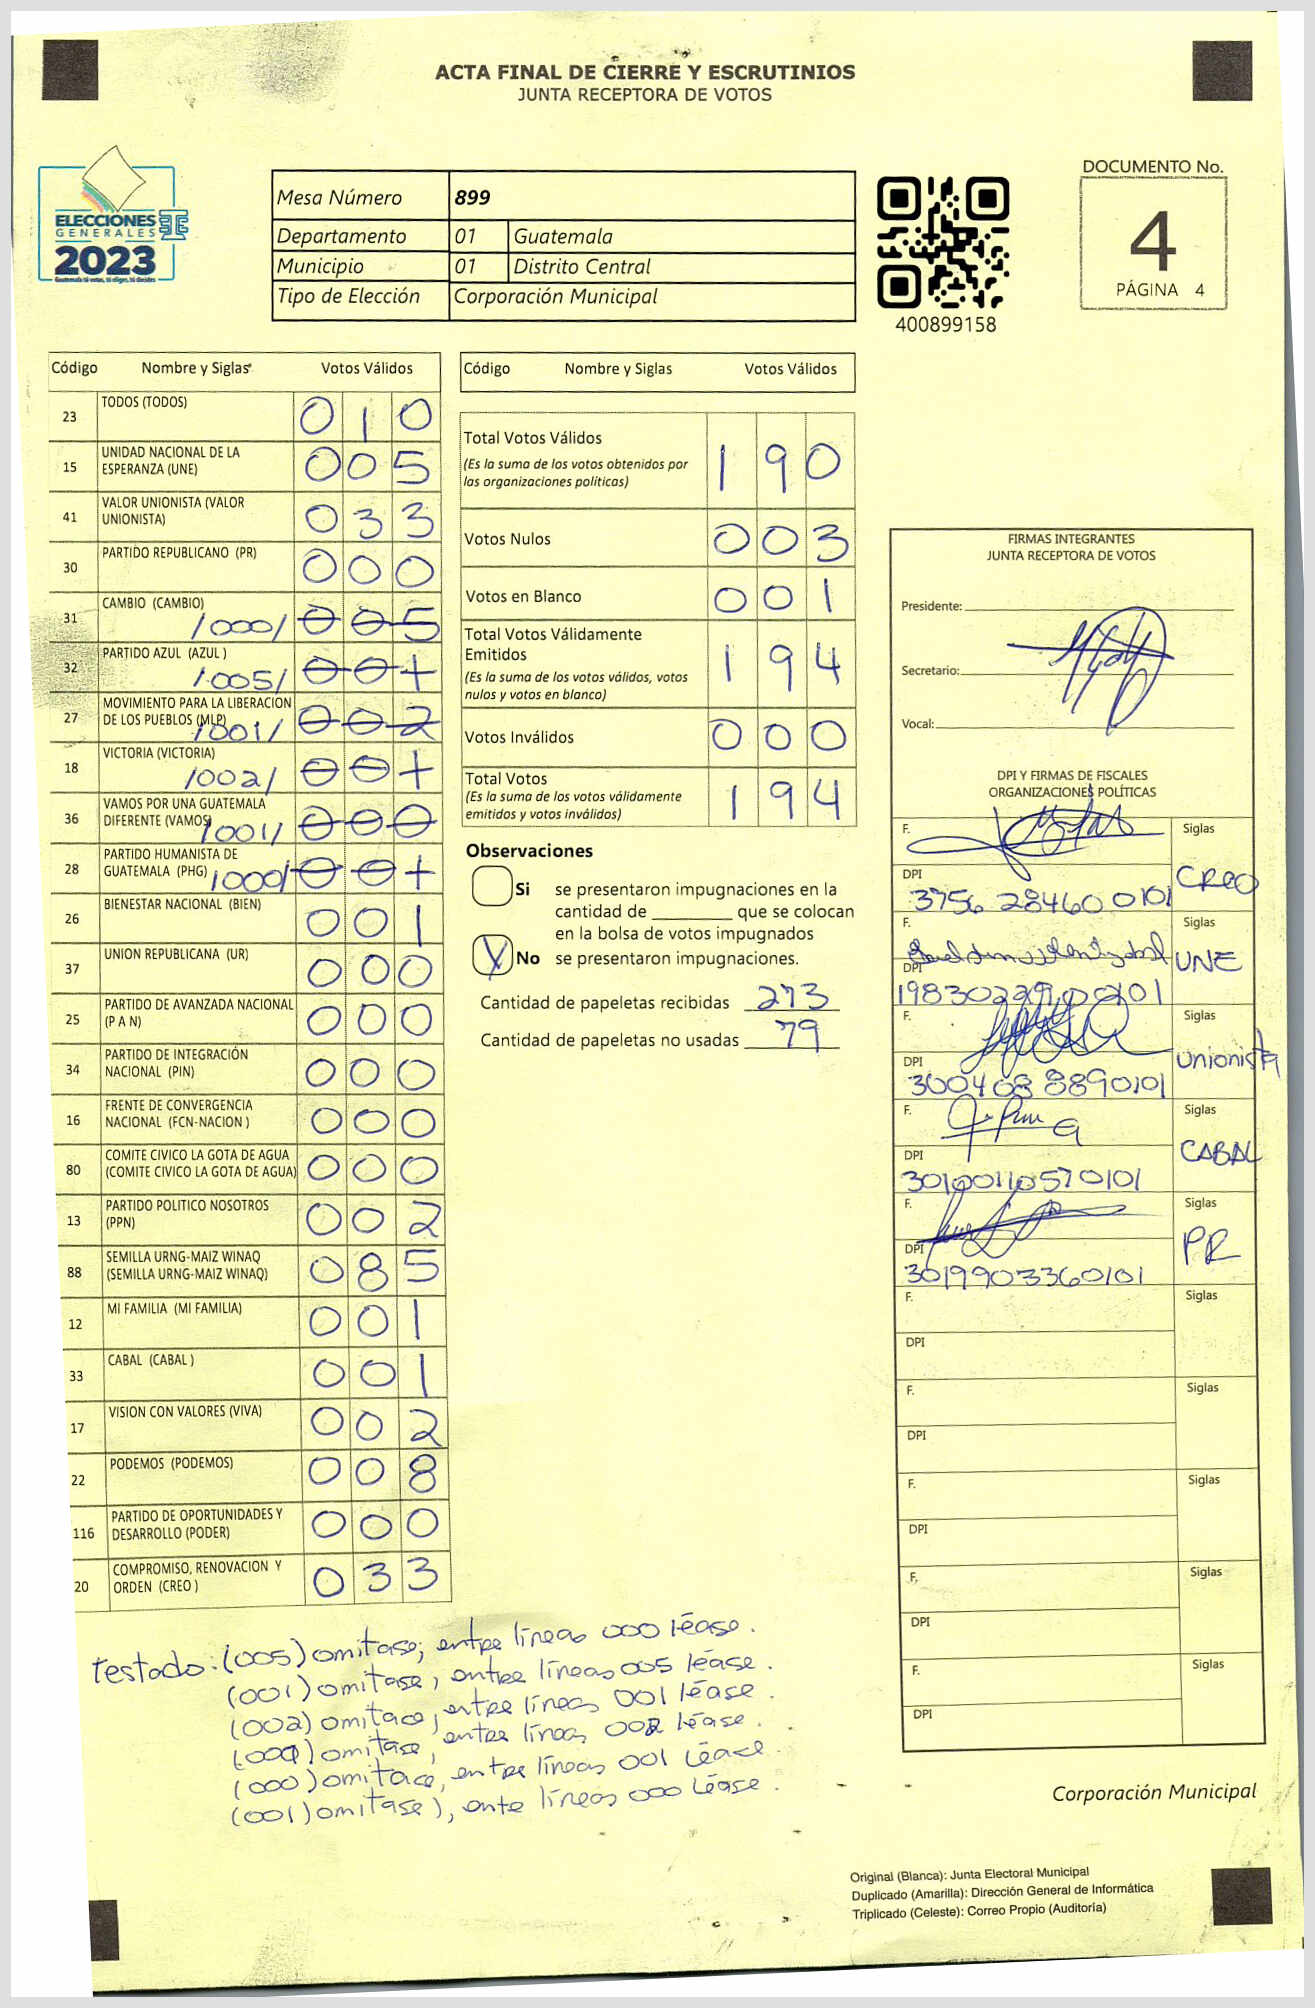 ACTA FINAL DE CIERRE Y ESCRUTINIOS
JUNTA RECEPTORA DE VOTOS
ELECCIONES
GENERALES
2023
Mesa Número 899
Departamento 01 Guatemala
Municipio 01 Distrito Central
Tipo de Elección Corporación Municipal
400899158
DOCUMENTO No.
4
PÁGINA 4
Código Nombre y Siglas Votos Válidos
23 TODOS (TODOS) 010
15 UNIDAD NACIONAL DE LA ESPERANZA (UNE) 005
41 VALOR UNIONISTA (VALOR UNIONISTA) 033
30 PARTIDO REPUBLICANO (PR) 000
31 CAMBIO (CAMBIO) /000/ 005
32 PARTIDO AZUL (AZUL ) /005/ 001
27 MOVIMIENTO PARA LA LIBERACION DE LOS PUEBLOS (MLP) /001/ 002
18 VICTORIA (VICTORIA) /002/ 001
36 VAMOS POR UNA GUATEMALA DIFERENTE (VAMOS) /001/ 000
28 PARTIDO HUMANISTA DE GUATEMALA (PHG) /000/ 001
26 BIENESTAR NACIONAL (BIEN) 001
37 UNION REPUBLICANA (UR) 000
25 PARTIDO DE AVANZADA NACIONAL (P A N) 000
34 PARTIDO DE INTEGRACIÓN NACIONAL (PIN) 000
16 FRENTE DE CONVERGENCIA NACIONAL (FCN-NACION ) 000
80 COMITE CIVICO LA GOTA DE AGUA (COMITE CIVICO LA GOTA DE AGUA) 000
13 PARTIDO POLITICO NOSOTROS (PPN) 002
88 SEMILLA URNG-MAIZ WINAQ (SEMILLA URNG-MAIZ WINAQ) 085
12 MI FAMILIA (MI FAMILIA) 001
33 CABAL (CABAL ) 001
17 VISION CON VALORES (VIVA) 002
22 PODEMOS (PODEMOS) 008
116 PARTIDO DE OPORTUNIDADES Y DESARROLLO (PODER) 000
20 COMPROMISO, RENOVACION Y ORDEN (CREO ) 033
Código Nombre y Siglas Votos Válidos
Total Votos Válidos 190
(Es la suma de los votos obtenidos por
las organizaciones políticas)
Votos Nulos 003
Votos en Blanco 001
Total Votos Válidamente
Emitidos 194
(Es la suma de los votos válidos, votos
nulos y votos en blanco)
Votos Inválidos 000
Total Votos 194
(Es la suma de los votos válidamente
emitidos y votos inválidos)
Observaciones
Si se presentaron impugnaciones en la
cantidad de ________ que se colocan
en la bolsa de votos impugnados
X No se presentaron impugnaciones.
Cantidad de papeletas recibidas 273
Cantidad de papeletas no usadas 79
FIRMAS INTEGRANTES
JUNTA RECEPTORA DE VOTOS
Presidente:
Secretario:
Vocal:
DPI Y FIRMAS DE FISCALES
ORGANIZACIONES POLÍTICAS
F. Siglas
CREO
DPI
3756 28460 0101
F. Siglas
UNE
DPI
F. Siglas
Unionista
DPI
300408 8890101
F. Siglas
CABAL
DPI
F. Siglas
PR
DPI
3019903360101
F. Siglas
DPI
F. Siglas
DPI
F. Siglas
DPI
F. Siglas
DPI
F. Siglas
DPI
Testado: (005) omitase; entre líneas 000 léase.
(001) omitase, entre líneas 005 léase.
(002) omitace, entre líneas 001 léase.
omitase, entre líneas 002 léase.
(000) omitace, entre líneas 001 léace.
(001) omitase), ente líneas 000 léase.
Corporación Municipal
Original (Blanca): Junta Electoral Municipal
Duplicado (Amarilla): Dirección General de Informática
Triplicado (Celeste): Correo Propio (Auditoría)